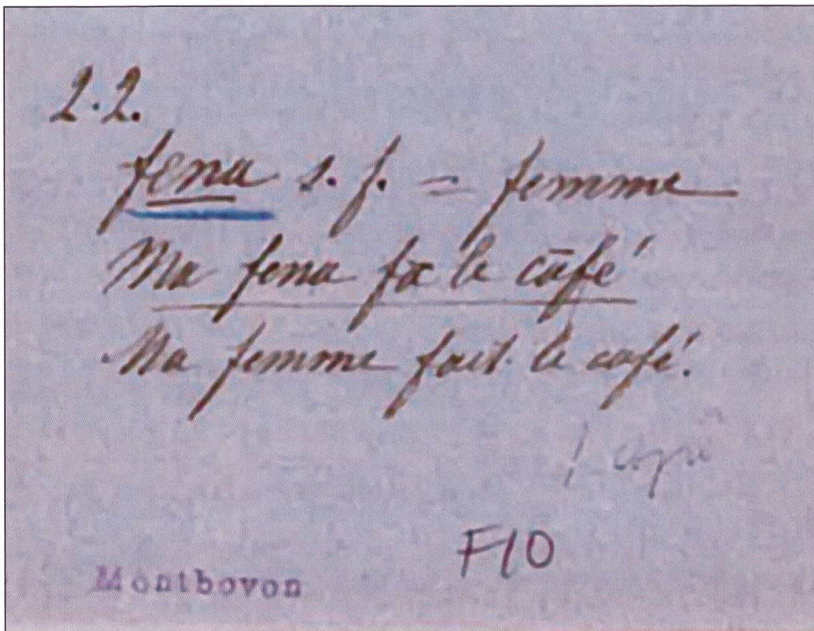 2.2.
fena s. f. = femme
Ma fena fā le cāfé
Ma femme fait le café.
F10
Montbovon